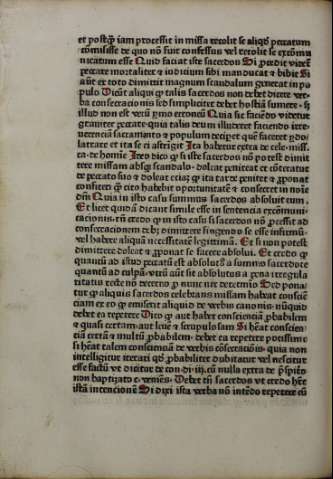 et postq̄ iam processit in missa recolit se aliqd̄ peccatum
cōmisisse de quo nō fuit confessus vel recolit se excōmu
nicatum esse Quid faciat iste sacerdos Si ꝓcedit videt᷑
peccare mortaliter ⁊ iudicium sibi manducat ⁊ bibit Si
aūt ex toto dimittit magnum scandalum generat in po
pulo Dicūt aliqui ꝙ talis sacerdos non debet dicere ver
ba consecracionis sed simpliciter debet hostiā sumere · sꝫ
illud non est verū ymo erroneū Quia sic faciēdo videtur
grauiter peccare quia talis deum illuderet faciendo irre
uerenciā sacramento ⁊ populum deciperet quē faceret ydo
latrare et ita se ci astrigit Ita habetur extra de cele. missa
ca. de homīe Ideo dico ꝙ si iste sacerdos nō potest dimit
tere missam absqꝫ scandalo · doleat peniteat ⁊ cōteratur
de peccato suo ⁊ doleat eciaꝫ ꝙ ita tarde penitet ⁊ ꝓponat
confiteri ꝙ cito habebit oportunitatē ⁊ conseret in noīe
dnī Quia in isto casu summus sacerdos absoluit eum.
Et licet quidā dicant simile esse in sentencia excōmuni
cacionis. tn̄ credo ꝙ in isto casu si sacerdos nō ꝓcessit ad
consecracionem debꝫ dimittere fingendo se esse infirmū
vel habere aliquā necessitatē legittimā. Et si non potest
dimittere doleat ⁊ ꝓponat se facere absolui. Et credo ꝙ
quantū ad istud peccatū est absolutꝰ a summo sacerdote
quantū ad culpā. vtrū aūt sit absolutus a pena irregula
ritatis recte nō decerno ꝙ nunc nec determīo Sed pona
tur ꝙ aliquis sacerdos celebrans missam habeat consciē
ciam ex eo ꝙ emiserit aliquid de verbis canonis. nūquid
debet ea repetere Dico ꝙ aut habet conscienciā ꝓbabilem
⁊ quasi certam. aut leuē ⁊ scrupulosam Si hēat conscien
ciā certā ⁊ multū ꝓbabilem · debet ea repetere potissime
si hēat talem conscienciā de verbis cōsecracōis. quia non
intelligitur iterari qd̄ ꝓbabiliter dubitatur vel nescitur
esse factū vt dicitur de con. di. iij. cū nulla extra de p̄sbitero
non baptizato c. venies. Debet tn̄ sacerdos vt credo hēre
istā intencionē Si dixi ista verba nō intēdo repetere cū